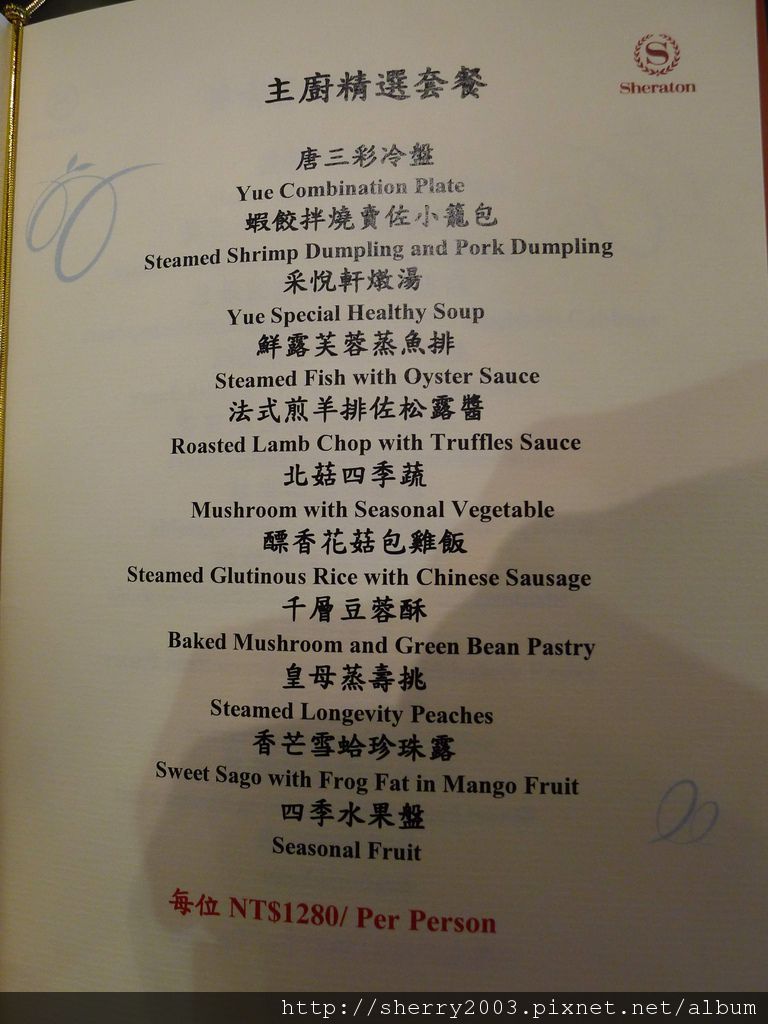 S
Sheraton
主廚精選套餐
唐三彩冷盤
Yue Combination Plate
蝦餃拌燒賣佐小籠包
Steamed Shrimp Dumpling and Pork Dumpling
采悅軒燉湯
Yue Special Healthy Soup
鮮露芙蓉蒸魚排
Steamed Fish with Oyster Sauce
法式煎羊排佐松露醬
Roasted Lamb Chop with Truffles Sauce
北菇四季蔬
Mushroom with Seasonal Vegetable
醥香花菇包雞飯
Steamed Glutinous Rice with Chinese Sausage
千層豆蓉酥
Baked Mushroom and Green Bean Pastry
皇母蒸壽挑
Steamed Longevity Peaches
香芒雪蛤珍珠露
Sweet Sago with Frog Fat in Mango Fruit
四季水果盤
Seasonal Fruit
每位 NT$1280/ Per Person
http://sherry2003.pixnet.net/album